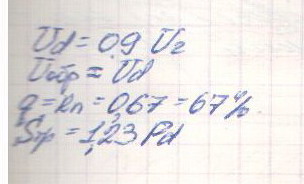 Ud = 0,9 U2
Uобр = Ud
q = Kп = 0,67 = 67%
Sтр = 1,23 Pd